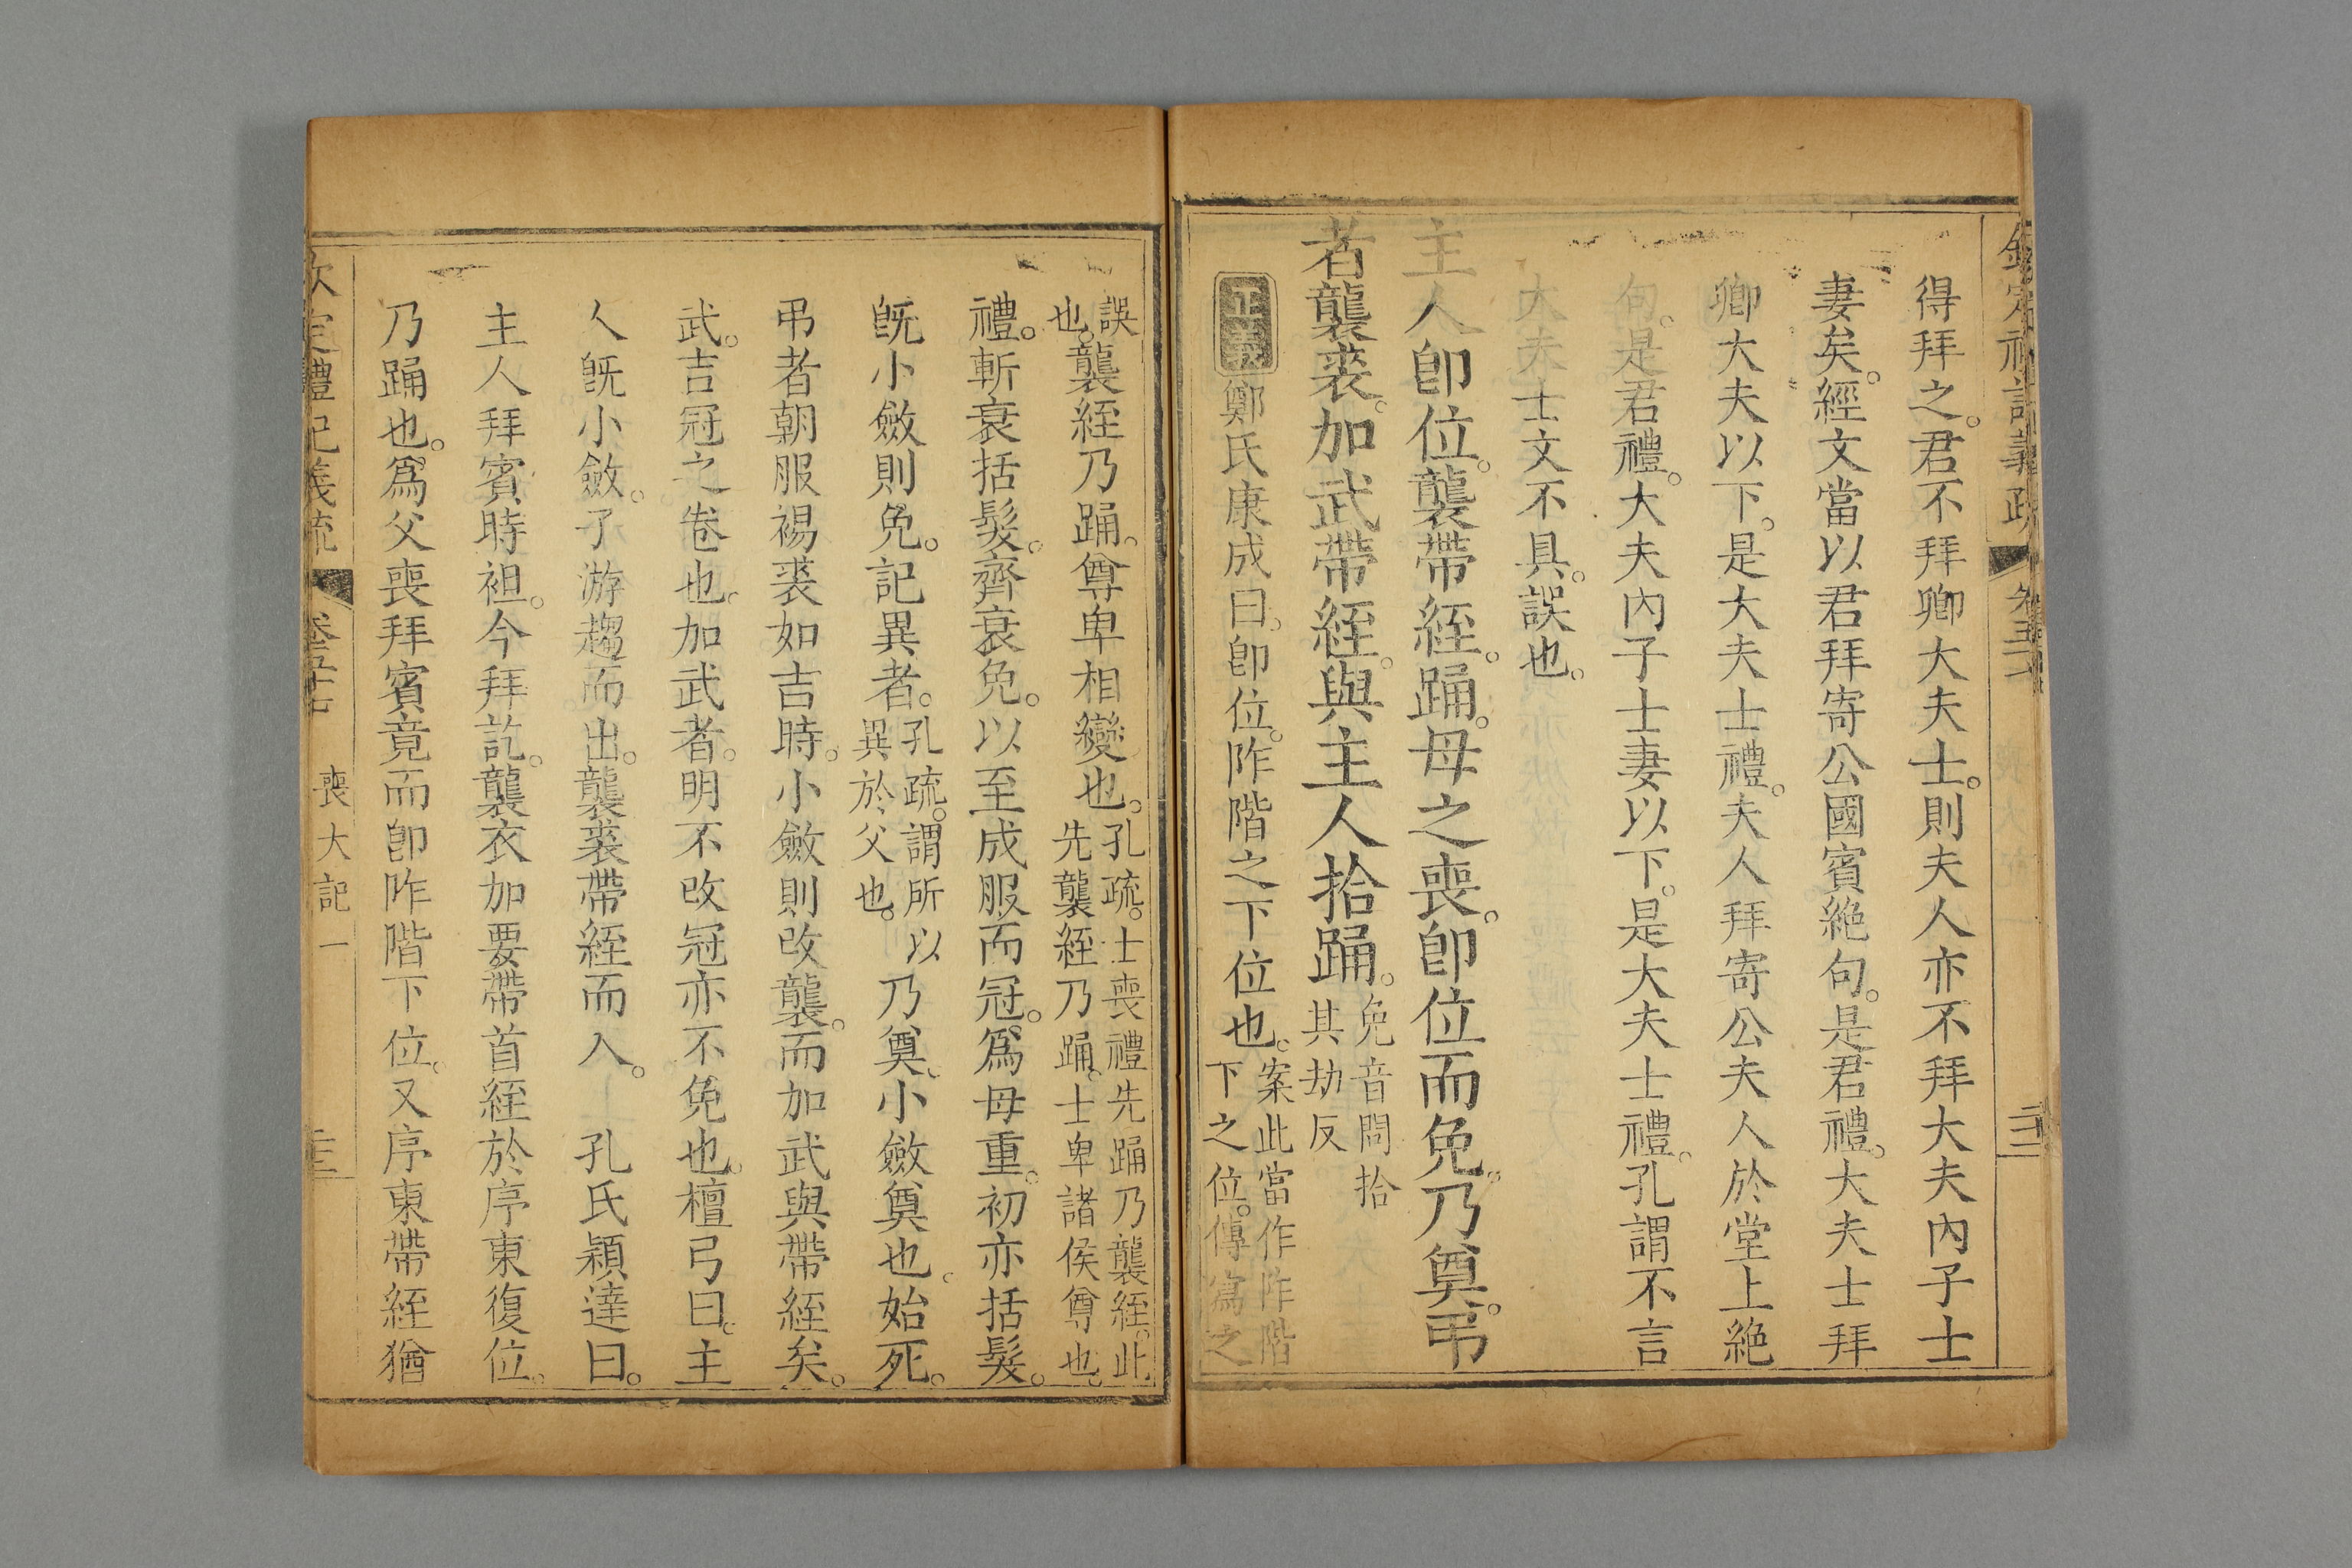 得拜之。君不拜卿大夫士。則夫人亦不拜大夫內子士
妻矣。經文當以君拜寄公國賓絶句。是君禮。大夫士拜
卿大夫以下。是大夫士禮。夫人拜寄公夫人於堂上絶
句。是君禮。大夫內子士妻以下。是大夫士禮。孔謂不言
大夫士文不具。誤也。
主人卽位。襲帶絰。踊。母之喪。卽位而免。乃奠。弔
者襲裘。加武帶絰。與主人拾踊。免音問拾
其劫反
正義鄭氏康成曰。卽位。阼階之下位也。案此當作阼階
下之位。傳寫之
誤
也。襲絰乃踊。尊卑相變也。孔疏。士喪禮先踊乃襲絰。此
先襲絰乃踊。士卑諸侯尊也。
禮。斬衰括髮。齊衰免。以至成服而冠。爲母重。初亦括髮。
旣小斂則免。記異者。孔疏。謂所以
異於父也。乃奠。小斂奠也。始死。
弔者朝服裼裘如吉時。小斂則改襲。而加武與帶絰矣。
武。吉冠之卷也。加武者。明不改冠亦不免也。檀弓曰。主
人旣小斂。子游趨而出。襲裘帶絰而入。 孔氏穎達曰。
主人拜賓時袒。今拜訖。襲衣加要帶首絰於序東復位。
乃踊也。爲父喪拜賓竟而卽阼階下位。又序東帶絰猶
欽定禮記義疏 卷五十七 喪大記一 三